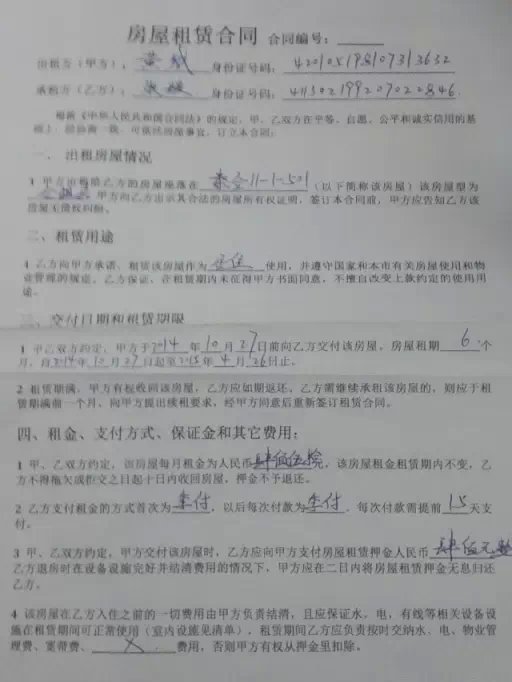 房屋租赁合同 合同编号：
出租方（甲方）： 身份证号码：
承租方（乙方）： 身份证号码：
根据《中华人民共和国合同法》的规定，甲、乙双方在平等、自愿、公平和诚实信用的基
础上，经协商一致，可就房屋事宜，订立本合同：
一、出租房屋情况
1 甲方出租给乙方的房屋座落在 11-1-501（以下简称该房屋）该房屋型为
甲方向乙方出示其合法的房屋所有权证明，签订本合同前，甲方应告知乙方该
房屋无债权纠纷。
二、租赁用途
1 乙方向甲方承诺，租赁该房屋作为 使用，并遵守国家和本市有关房屋使用和物
业管理的规定。乙方保证，在租赁期内未征得甲方书面同意，不擅自改变上款约定的使用用
途。
三、交付日期和租赁期限
1 甲乙双方约定，甲方于2014年10月27日前向乙方交付该房屋，房屋租期6个
月，自2014年10月27日起至2015年4月26日止。
2 租赁期满，甲方有权收回该房屋，乙方应如期返还，乙方需继续承租该房屋的，则应于租
赁期满前一个月，向甲方提出续租要求，经甲方同意后重新签订租赁合同。
四、租金、支付方式、保证金和其它费用：
1 甲、乙双方约定，该房屋每月租金为人民币肆佰伍拾，该房屋租金租赁期内不变，乙
方不得拖欠或拒交之日起十日内收回房屋，押金不予退还。
2 乙方支付租金的方式首次为季付，以后每次付款为季付，每次付款需提前15天支
付。
3 甲、乙双方约定，甲方交付该房屋时，乙方应向甲方支付房屋租赁押金人民币肆佰元整
乙方退房时在设备设施完好并结清费用的情况下，甲方应在二日内将房屋租赁押金无息归还
乙方。
4 该房屋在乙方入住之前的一切费用由甲方负责结清，且应保证水，电，有线等相关设备设
施在租赁期间可正常使用（室内设施见清单），租赁期间乙方应负责按时交纳水、电、物业管
理费、宽带费、 费用，否则甲方有权从押金里扣除。